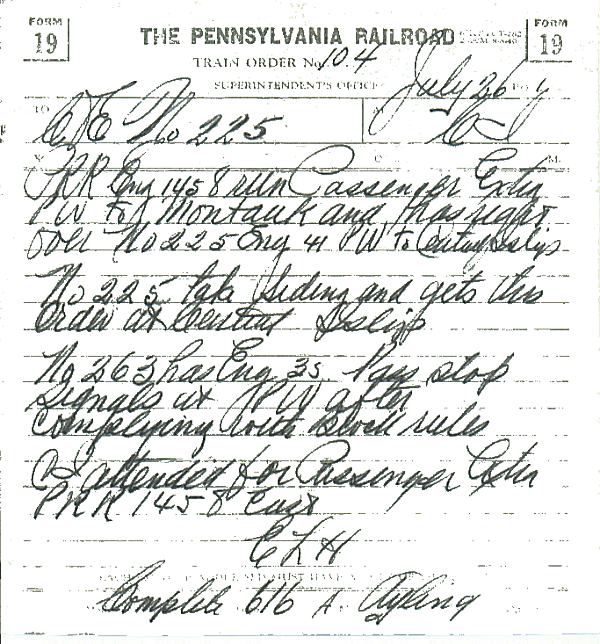 FORM 19
THE PENNSYLVANIA RAILROAD
FORM 19
TRAIN ORDER No. 104
SUPERINTENDENT'S OFFICE July 26
TO
C&E No 225
CI
M.
PRR Eng 1458 run Passenger Extra
PW To Montauk and has right
over No 225 Eng 41 PW To Central Islip
No 225 take siding and gets this
Order at Central Islip
No 263 has Eng 35 Pass stop
signals at PW after
complying with block rules
CI attended for Passenger Extra
PRR 1458 East
CLH
Complete 616 A.